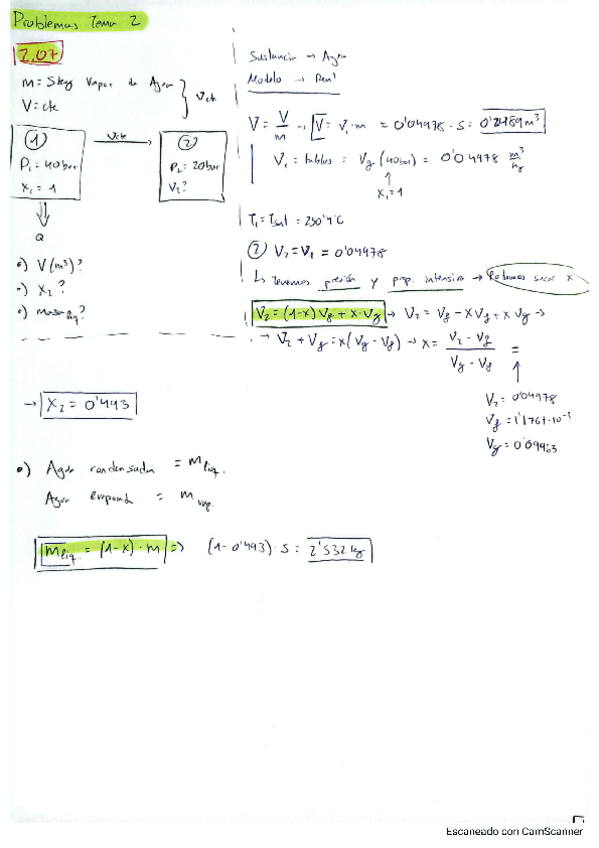 Problemas Tema 2
2.07
m = 5kg Vapor de Agua
V = cte
Vcte
①
P₁ = 40bar
X₁ = 1
Vcte
②
P₂ = 20bar
V₂?
Q
•) V(m³)?
•) X₂?
•) masa liq?
Sustancia → Agua
Modelo → Real
V = V/m → V = v₁·m = 0'04978 · 5 = 0'2489m³
V₁ = tablas = Vg (40bar) = 0'04978 m³/kg
X₁=1
T₁ = Tsat = 250'4°C
② V₂ = V₁ = 0'04978
↳ Tenemos presión y prop. intensiva → Podemos sacar X
V₂ = (1-x)Vf + x·Vg → V₂ = Vf - xVf + x Vg →
→ V₂ + Vf = x(Vg - Vf) → x = V₂ - Vf / Vg - Vf =
V₂ = 0'04978
Vf = 1'1767·10⁻³
Vg = 0'09963
→ X₂ = 0'493
•) Agua condensada = mliq.
Agua evaporada = mvap.
mliq. = (1-x)·m => (1-0'493)·5 = 2'532 kg
Escaneado con CamScanner